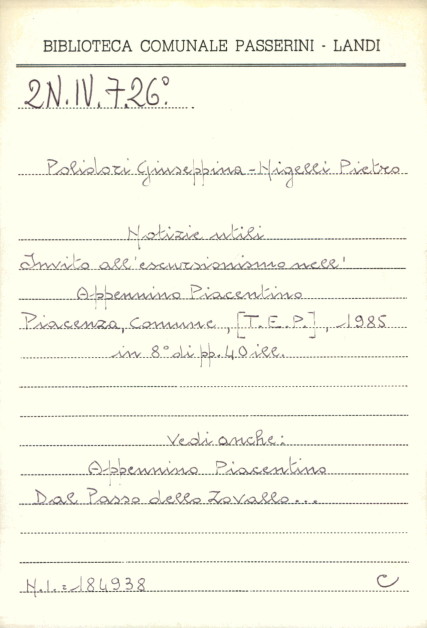 BIBLIOTECA COMUNALE PASSERINI - LANDI
2N.IV.7.26°.
Polidori Giuseppina - Nigelli Pietro
Notizie utili
Invito all'escursionismo nell'
Appennino Piacentino
Piacenza, Comune, [T.E.P.], 1985
in 8° di pp. 40 ill.
Vedi anche:
Appennino Piacentino
Dal Passo dello Zovallo...
N.I.=184938 C